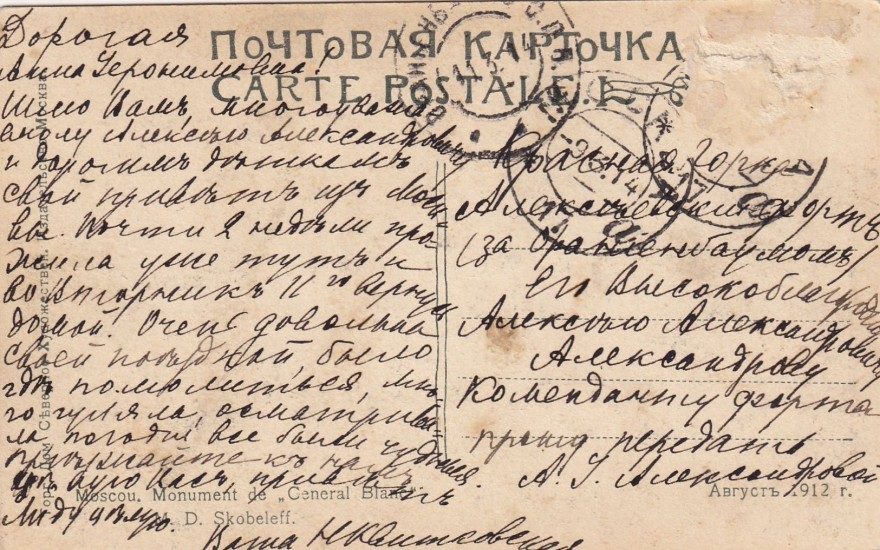 ПОЧТОВАЯ КАРТОЧКА
CARTE POSTALE
Дорогая
Анна Іеронимовна!
Шлю Вамъ, многоуважа
емому Алексѣю Александровичу
и дорогимъ дѣткамъ
свой привѣтъ изъ Моск
вы. Почти 2 недѣли про
жила уже тутъ и
во Вторникъ 11го вернусь
домой. Очень довольна
своей поѣздкой, было
гдѣ помолиться, мно
го гуляла, осматрива
ла, погоды все были чудныя.
Пріѣзжайте къ намъ
цѣлую Васъ, привѣтъ
Лиду цѣлую.
Ваша
Красная Горка
Алексѣевскій фортъ
(за Ораніенбаумомъ)
Его Высокоблагородію
Алексѣю Александровичу
Александрову
Коменданту форта
прошу передать
А. І. Александровой
Moscou. Monument de „General Blanc"
M. D. Skobeleff.
Августъ 1912 г.